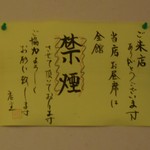 ご来店
ありがとうございます
当店お昼席は
全席
禁煙
させて頂いております
ご協力よろしく
お願い致します
店主